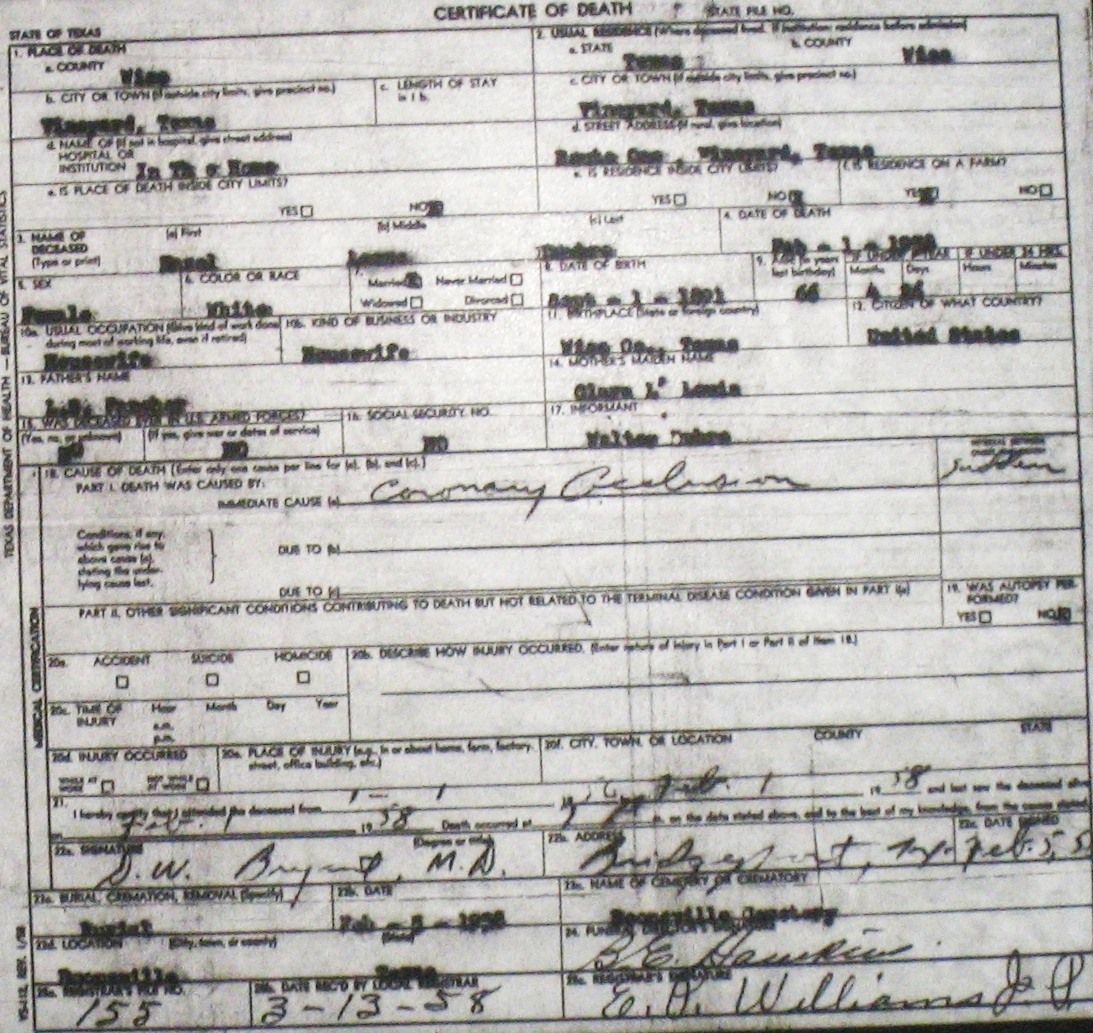 CERTIFICATE OF DEATH
STATE FILE NO.
STATE OF TEXAS
1. PLACE OF DEATH
a. COUNTY
Wise
2. USUAL RESIDENCE (Where deceased lived. If institution: residence before admission)
a. STATE
Texas
b. COUNTY
Wise
b. CITY OR TOWN (If outside city limits, give precinct no.)
Vineyard, Texas
c. LENGTH OF STAY
in 1 b.
c. CITY OR TOWN (If outside city limits, give precinct no.)
Vineyard, Texas
d. NAME OF (If not in hospital, give street address)
HOSPITAL OR
INSTITUTION In Th e Home
d. STREET ADDRESS (If rural, give location)
Route One, Vineyard, Texas
e. IS PLACE OF DEATH INSIDE CITY LIMITS?
YES NO
e. IS RESIDENCE INSIDE CITY LIMITS?
YES NO
f. IS RESIDENCE ON A FARM?
YES NO
3. NAME OF
DECEASED
(Type or print)
(a) First
Hazel
(b) Middle
(c) Last
4. DATE OF DEATH
Feb - 1 - 1958
5. SEX
Female
6. COLOR OR RACE
White
7.
Married Never Married
Widowed Divorced
8. DATE OF BIRTH
Sept - 1 - 1891
9. AGE (In years
last birthday)
66
IF UNDER 1 YEAR
Months Days
4
IF UNDER 24 HRS.
Hours Minutes
10a. USUAL OCCUPATION (Give kind of work done
during most of working life, even if retired)
Housewife
10b. KIND OF BUSINESS OR INDUSTRY
Housewife
11. BIRTHPLACE (State or foreign country)
Wise Co., Texas
12. CITIZEN OF WHAT COUNTRY?
United States
13. FATHER'S NAME
14. MOTHER'S MAIDEN NAME
Lewis
15. WAS DECEASED EVER IN U.S. ARMED FORCES?
(Yes, no, or unknown)
NO
(If yes, give war or dates of service)
NO
16. SOCIAL SECURITY NO.
NO
17. INFORMANT
Walter
18. CAUSE OF DEATH (Enter only one cause per line for (a), (b), and (c).)
PART I. DEATH WAS CAUSED BY:
IMMEDIATE CAUSE (a) Coronary Occlusion
INTERVAL BETWEEN
ONSET AND DEATH
Sudden
Conditions, if any,
which gave rise to
above cause (a),
stating the under-
lying cause last.
DUE TO (b)
DUE TO (c)
PART II. OTHER SIGNIFICANT CONDITIONS CONTRIBUTING TO DEATH BUT NOT RELATED TO THE TERMINAL DISEASE CONDITION GIVEN IN PART I(a)
19. WAS AUTOPSY PER-
FORMED?
YES NO
20a. ACCIDENT SUICIDE HOMICIDE
20b. DESCRIBE HOW INJURY OCCURRED. (Enter nature of injury in Part I or Part II of item 18.)
20c. TIME OF
INJURY
Hour Month Day Year
a.m.
p.m.
20d. INJURY OCCURRED
WHILE AT
WORK
NOT WHILE
AT WORK
20e. PLACE OF INJURY (e.g., in or about home, farm, factory,
street, office building, etc.)
20f. CITY, TOWN, OR LOCATION
COUNTY
STATE
21. I hereby certify that I attended the deceased from 1 - 1 Feb. 1 1958 and last saw the deceased alive
Feb. 1 1958 Death occurred at m. on the date stated above, and to the best of my knowledge, from the causes stated.
22a. SIGNATURE
(Degree or title)
D. W. Bryant, M.D.
22b. ADDRESS
Bridgeport, Tex.
22c. DATE SIGNED
Feb. 5, 5
23a. BURIAL, CREMATION, REMOVAL (Specify)
Burial
23b. DATE
23c. NAME OF CEMETERY OR CREMATORY
Boonsville Cemetery
23d. LOCATION (City, town, or county)
Boonsville
(State)
Texas
24. FUNERAL DIRECTOR'S SIGNATURE
B. E. Hawkins
25a. REGISTRAR'S FILE NO.
155
25b. DATE REC'D BY LOCAL REGISTRAR
3-13-58
25c. REGISTRAR'S SIGNATURE
Williams J P
TEXAS DEPARTMENT OF HEALTH — BUREAU OF VITAL STATISTICS
MEDICAL CERTIFICATION